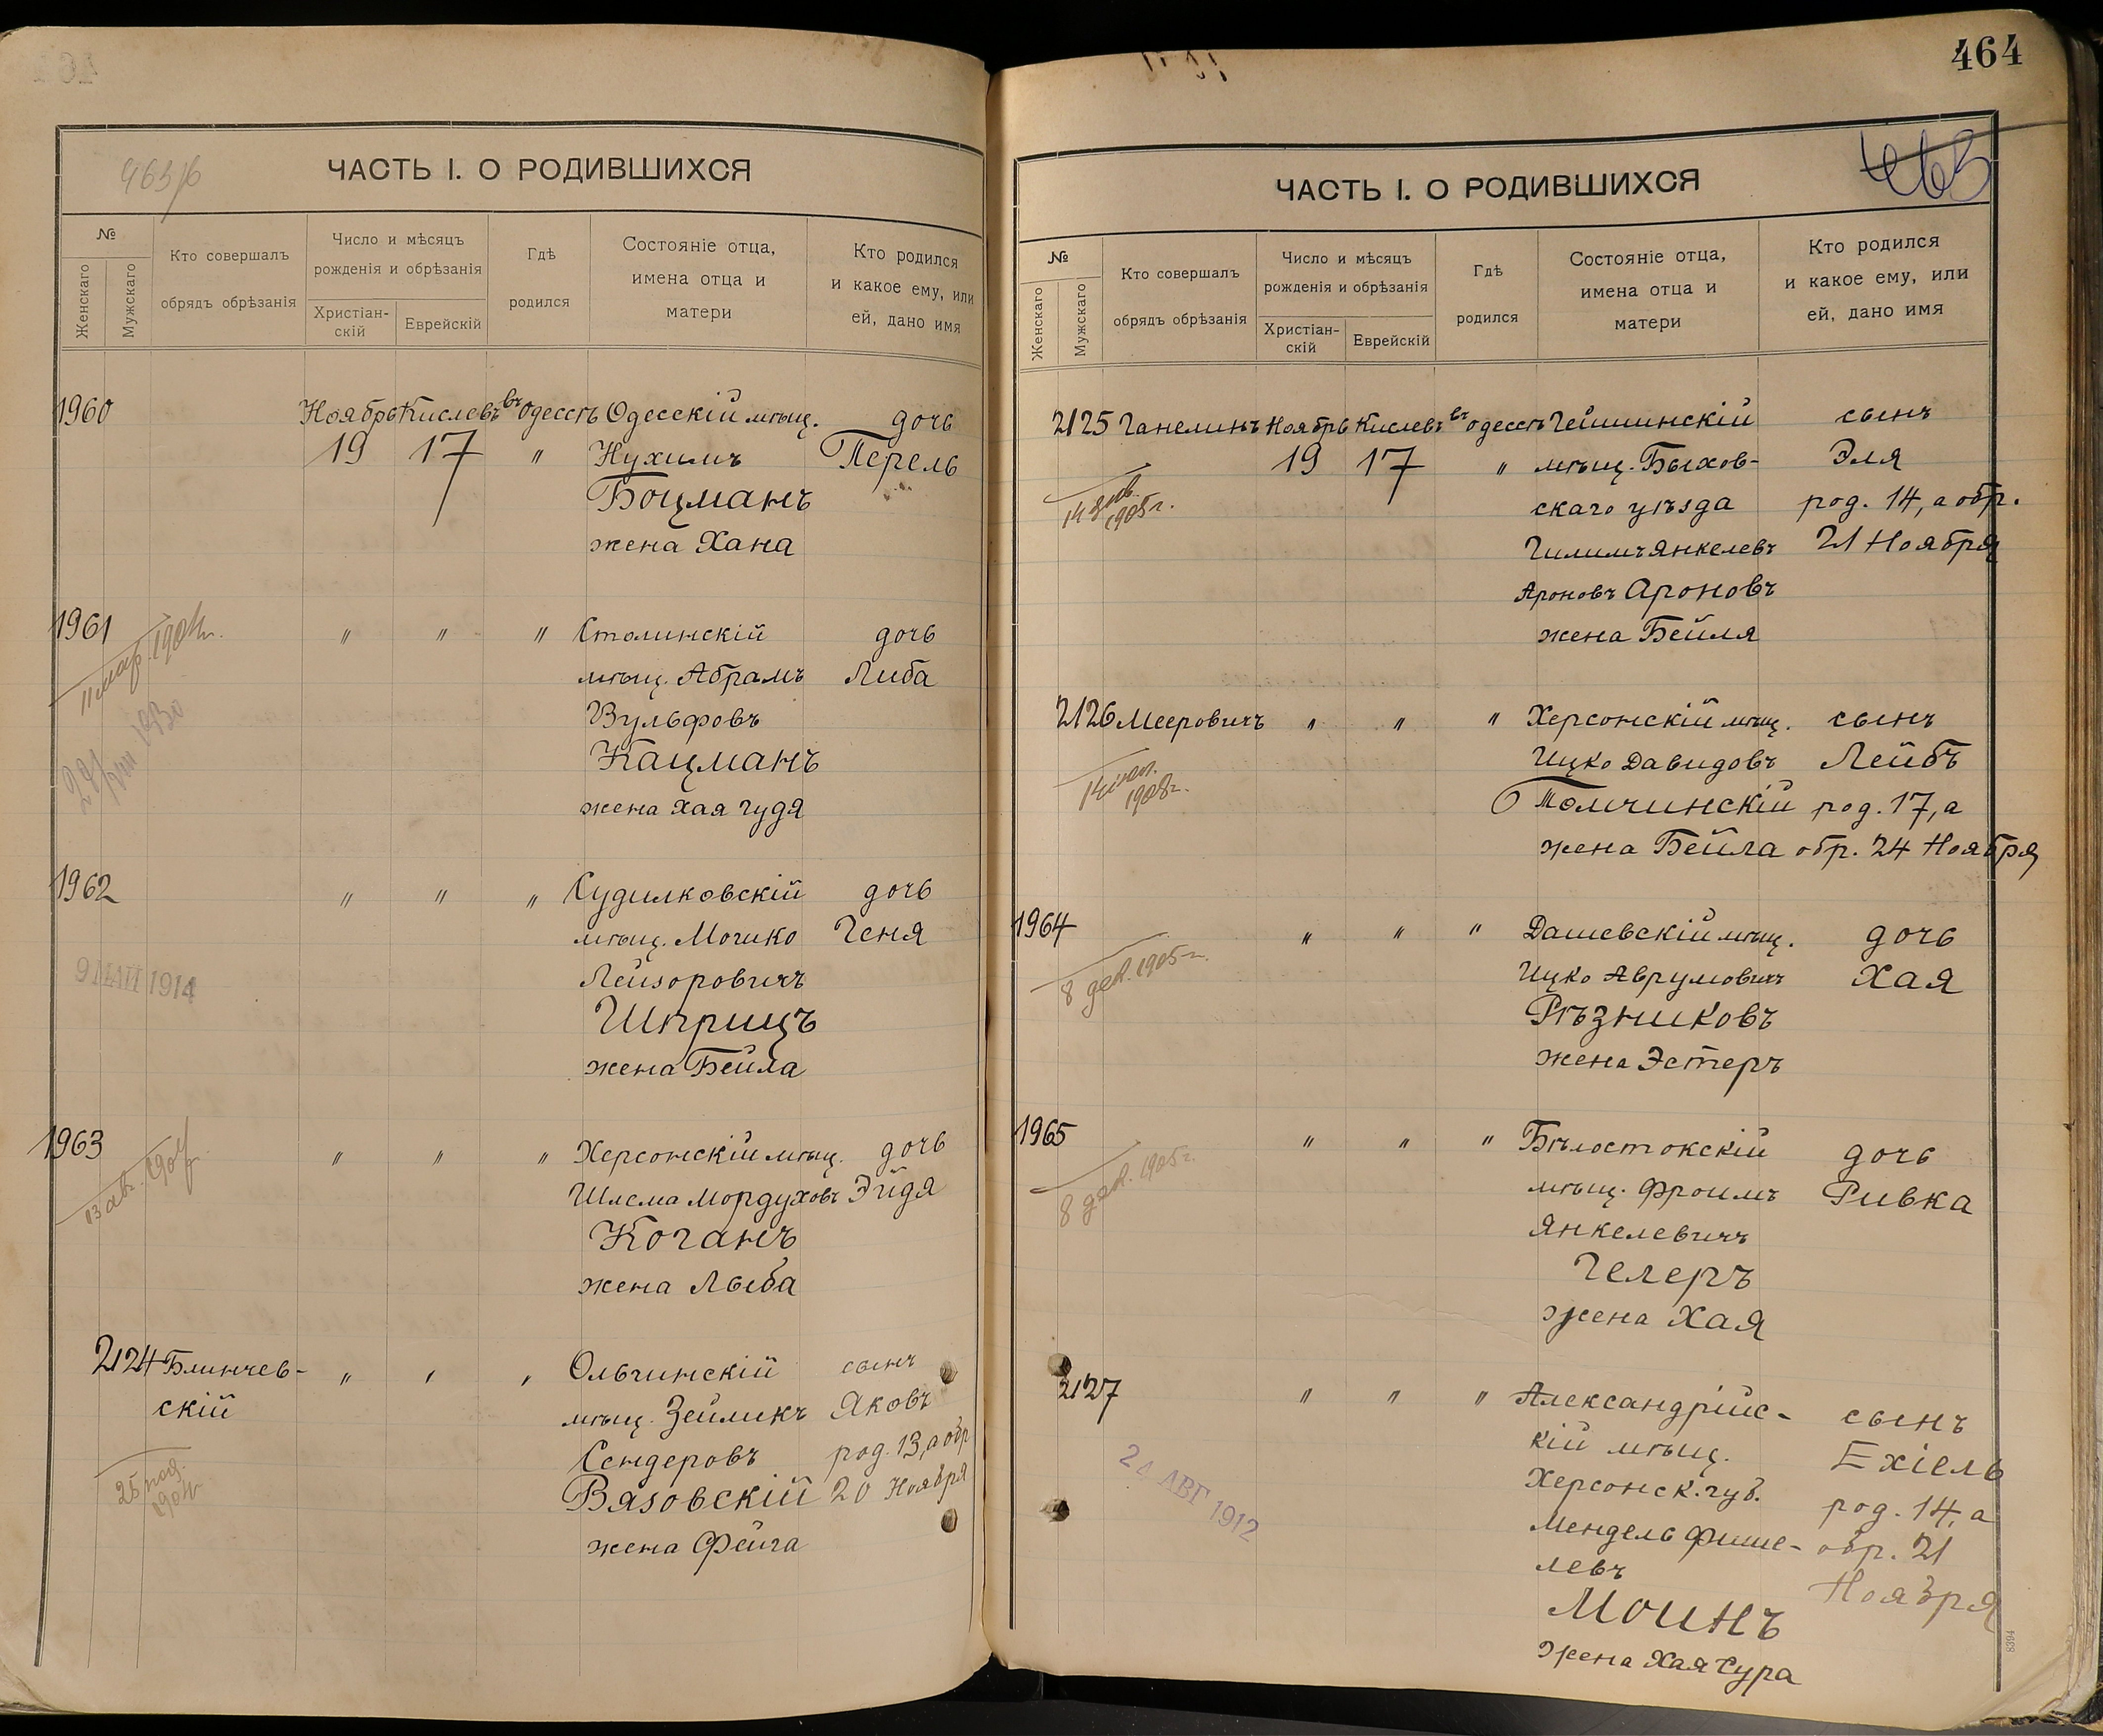 463/б
ЧАСТЬ I. О РОДИВШИХСЯ
№
Женскаго
Мужскаго
Кто совершалъ
обрядъ обрѣзанія
Число и мѣсяцъ
рожденія и обрѣзанія
Христіан-
скій
Еврейскій
Гдѣ
родился
Состояніе отца,
имена отца и
матери
Кто родился
и какое ему, или
ей, дано имя
1960 Ноябрь Кислевъ въ Одессѣ Одесскій мѣщ. дочь
19 17 " Нухимъ Перель
Боцманъ
жена Хана
1961 " " " Столинскій дочь
мѣщ. Абрамъ Либа
Вульфовъ
Кацманъ
жена Хая Гудя
11 мар. 1904 г.
1962 " " " Судилковскій дочь
мѣщ. Мошко Геня
Лейзоровичъ
Шприцъ
жена Бейла
9 МАЙ 1914
1963 " " " Херсонскій мѣщ. дочь
Шлема Мордуховъ Эйдя
Коганъ
жена Лыба
13 авг. 1904
2124 Блинчев- " " " Ольчинскій сынъ
скій мѣщ. Зейликъ Яковъ
Сендеровъ род. 13, а обр
Вязовскій 20 Ноября
жена Фейга
464
463
ЧАСТЬ I. О РОДИВШИХСЯ
№
Женскаго
Мужскаго
Кто совершалъ
обрядъ обрѣзанія
Число и мѣсяцъ
рожденія и обрѣзанія
Христіан-
скій
Еврейскій
Гдѣ
родился
Состояніе отца,
имена отца и
матери
Кто родился
и какое ему, или
ей, дано имя
2125 Ганелинъ Ноябрь Кислевъ въ Одессѣ сынъ
19 17 " мѣщ. Быхов- Эля
скаго уѣзда род. 14, а обр.
Янкелевъ 21 Ноября
Ароновъ Ароновъ
жена Бейля
1905 г.
2126 Мееровичъ " " " Херсонскій мѣщ. сынъ
Ицко Давидовъ Лейбъ
Томчинскій род. 17, а
жена Бейла обр. 24 Ноября
1908 г.
1964 " " " Дашевскій мѣщ. дочь
Ицко Аврумовичъ Хая
Рѣзниковъ
жена Эстеръ
8 дек. 1905 г.
1965 " " " Бѣлостокскій дочь
мѣщ. Фроимъ Ривка
Янкелевичъ
Гелеръ
жена Хая
8 дек. 1905 г.
2127 " " " Александрійс- сынъ
кій мѣщ. Ехіель
Херсонск. губ. род. 14, а
Мендель Фише- обр. 21
левъ Ноября
Моинъ
жена Хая Сура
24 АВГ 1912
8394